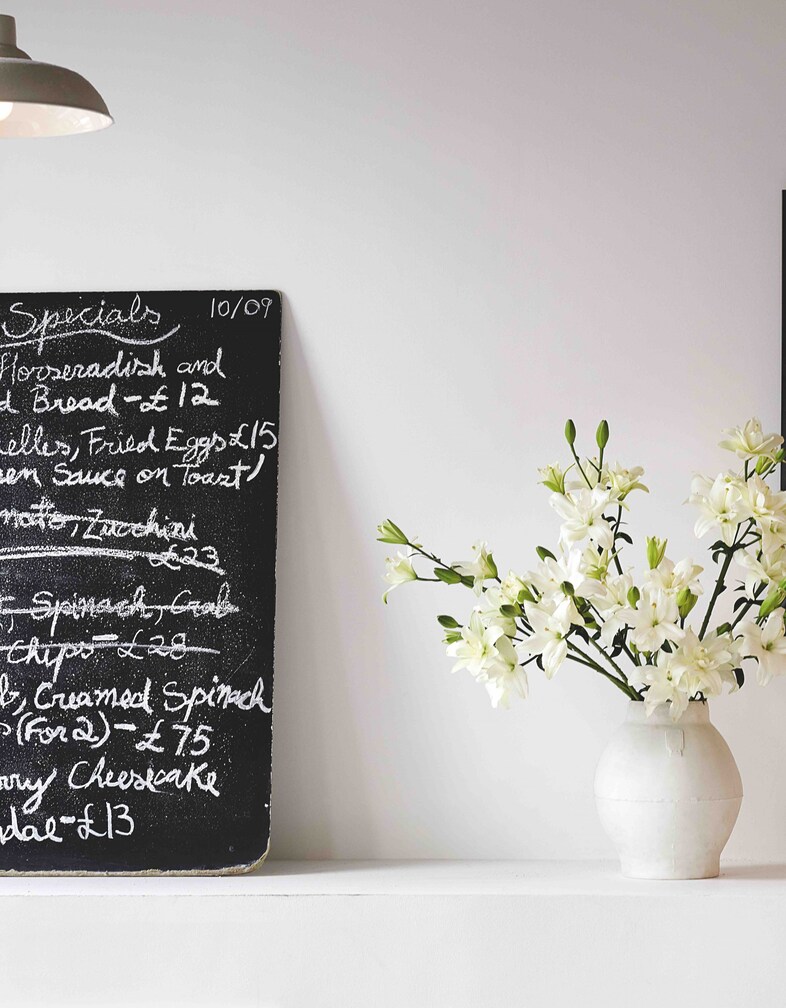 Specials 10/09
Horseradish and
d Bread - £12
elles, Fried Eggs £15
een Sauce on Toast
mato, Zucchini
£23
, Spinach, Crab
Chips - £28
b, Creamed Spinach
(For 2) - £75
rry Cheesecake
dae - £13